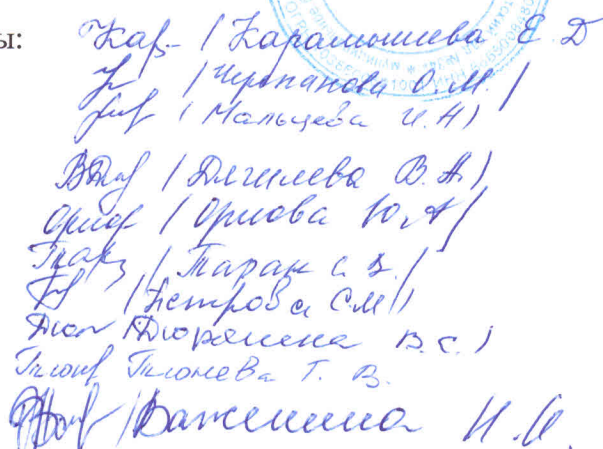 ы: Кар- / Карамышева Е. Д
/ Черпанова О. М. /
/ Мальцева И. Н /
/ Дягилева В. А. /
Орлов / Орлова Ю. А /
Таран / Таран С. В. /
/ Петрова С. М /
Дюр / Дюрягина В. С. /
Тюнева Т. В.
/ Важенина Н. И.